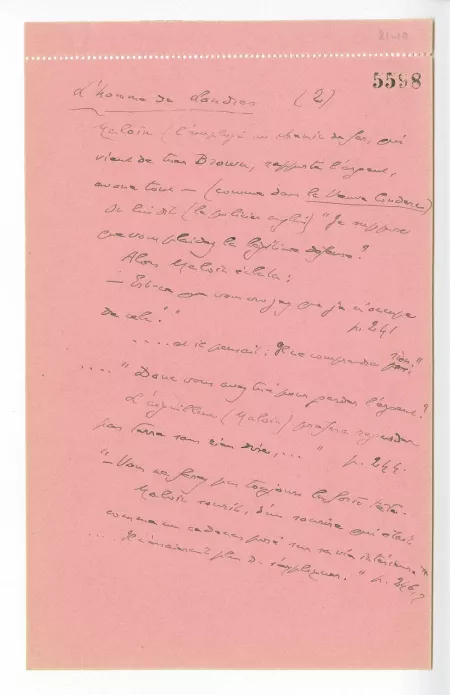 5598
L'homme de Londres (2)
Maloin (l'employé au chemin de fer, qui
vient de tuer Brown, rapporte l'argent,
avoue tout — (comme dans la Veuve Couderc)
On lui dit (le policier anglais) "Je suppose
que vous plaidez la légitime défense?
Alors Maloin éclata :
— Est-ce que vous croyez que je m'occupe
de cela!" p. 241
.... et il pensait : Il ne comprendra rien!"
.... "Donc vous avez tué pour garder l'argent?
L'aiguilleur (Maloin) préféra regarder
par terre sans rien dire, ... " p. 244.
"— Vous ne ferez pas toujours la forte tête.
Maloin sourit, d'un sourire qui était
comme un cadenas posé sur sa vie intérieure."
.... Il n'essaierait plus de s'expliquer." p. 246,7